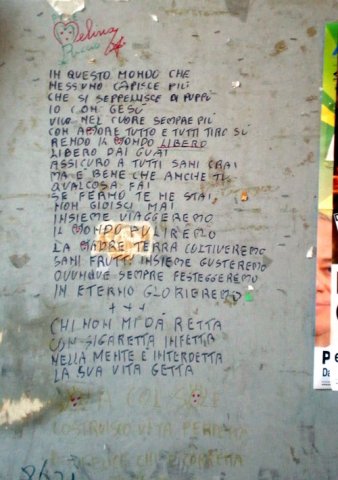 Melina
IN QUESTO MONDO CHE
NESSUNO CAPISCE PIÙ
CHE SI SEPPELLISCE DI PUPPÙ
IO CON GESÙ
VIVO NEL CUORE SEMPRE PIÙ
CON AMORE TUTTO E TUTTI TIRO SÙ
RENDO IL MONDO LIBERO
LIBERO DAI GUAI
ASSICURO A TUTTI SANI GRAI
MA È BENE CHE ANCHE TI
QUALCOSA FAI
SE FERMO TE NE STAI
NON GIOISCI MAI
INSIEME VIAGGEREMO
IL MONDO PULIREMO
LA MADRE TERRA COLTIVEREMO
SANI FRUTTI INSIEME GUSTEREMO
OVUNQUE SEMPRE FESTEGGEREMO
IN ETERNO GLORIEREMO
+ + +
CHI NON MI DA RETTA
CON SIGARETTA INFETTA
NELLA MENTE È INTERDETTA
LA SUA VITA GETTA
COL SOLE
COSTRUISCO VITA
CHI